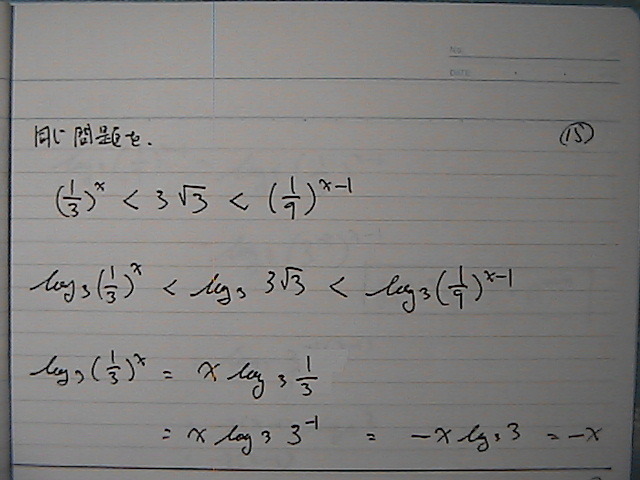 No.
DATE
同じ問題を. (15)
(1/3)^x < 3√3 < (1/9)^(x-1)
log₃(1/3)^x < log₃ 3√3 < log₃(1/9)^(x-1)
log₃(1/3)^x = x log₃ 1/3
= x log₃ 3^(-1) = -x log₃ 3 = -x